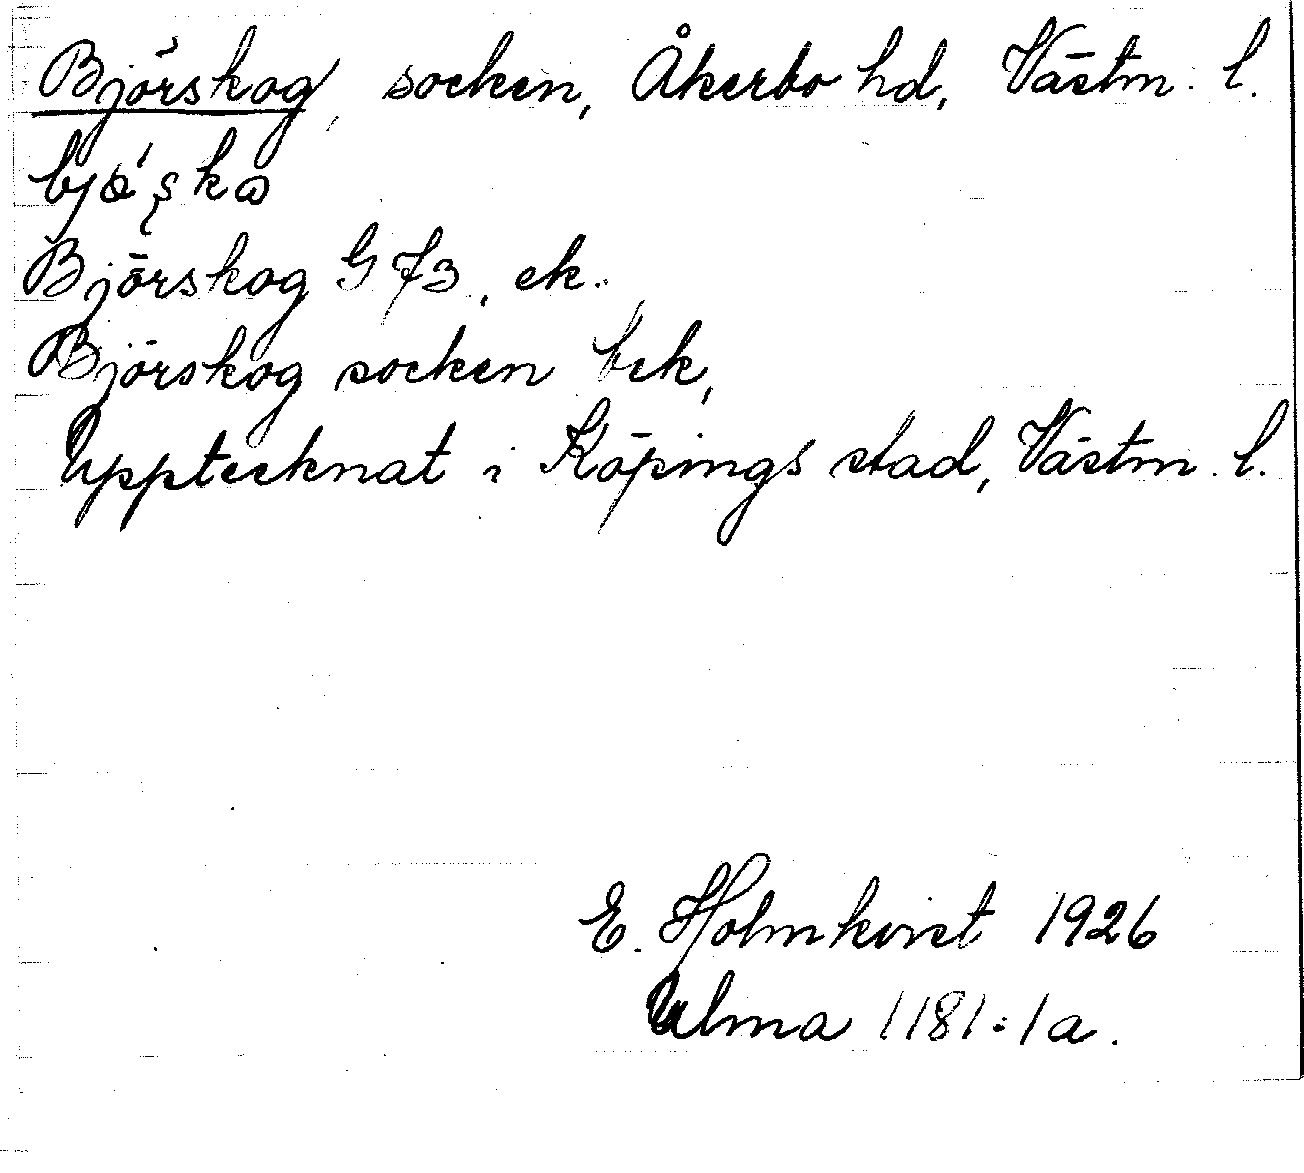 Björskog, socken, Åkerbo hd, Västm. l.
Björskog G 73, ek.
Björskog socken bek,
Upptecknat i Köpings stad, Västm. l.
E. Holmkvist 1926
Ulma 1181:1a.